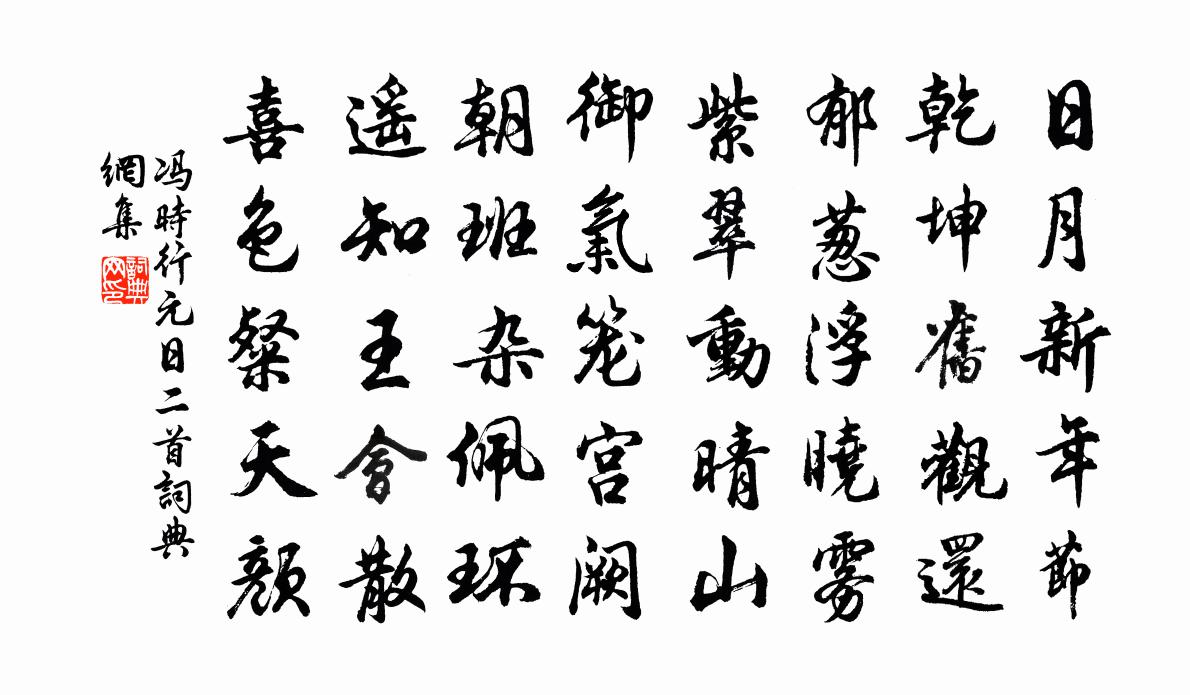 日月新年節
乾坤舊觀還
郁葱浮曉雾
紫翠動晴山
御氣笼宫阙
朝班杂佩环
遥知王會散
喜色粲天顔
冯時行元日二首詞典
網集
詞典
网印